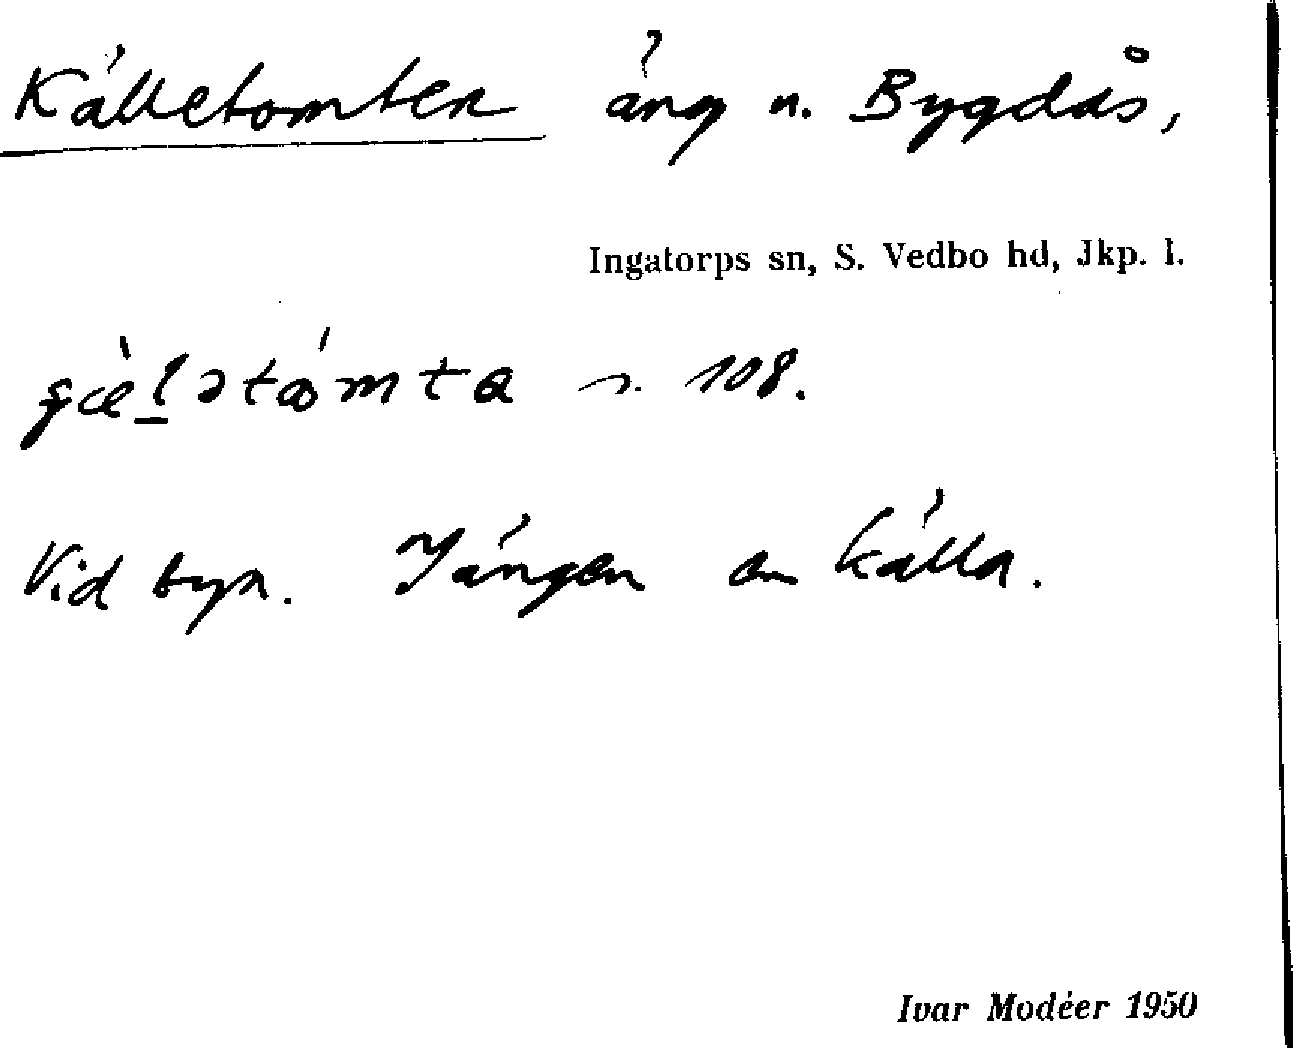 Källetomten äng n. Bygdås,
Ingatorps sn, S. Vedbo hd, Jkp. l.
n. 108.
Vid byn. I ängen en källa.
Ivar Modéer 1950